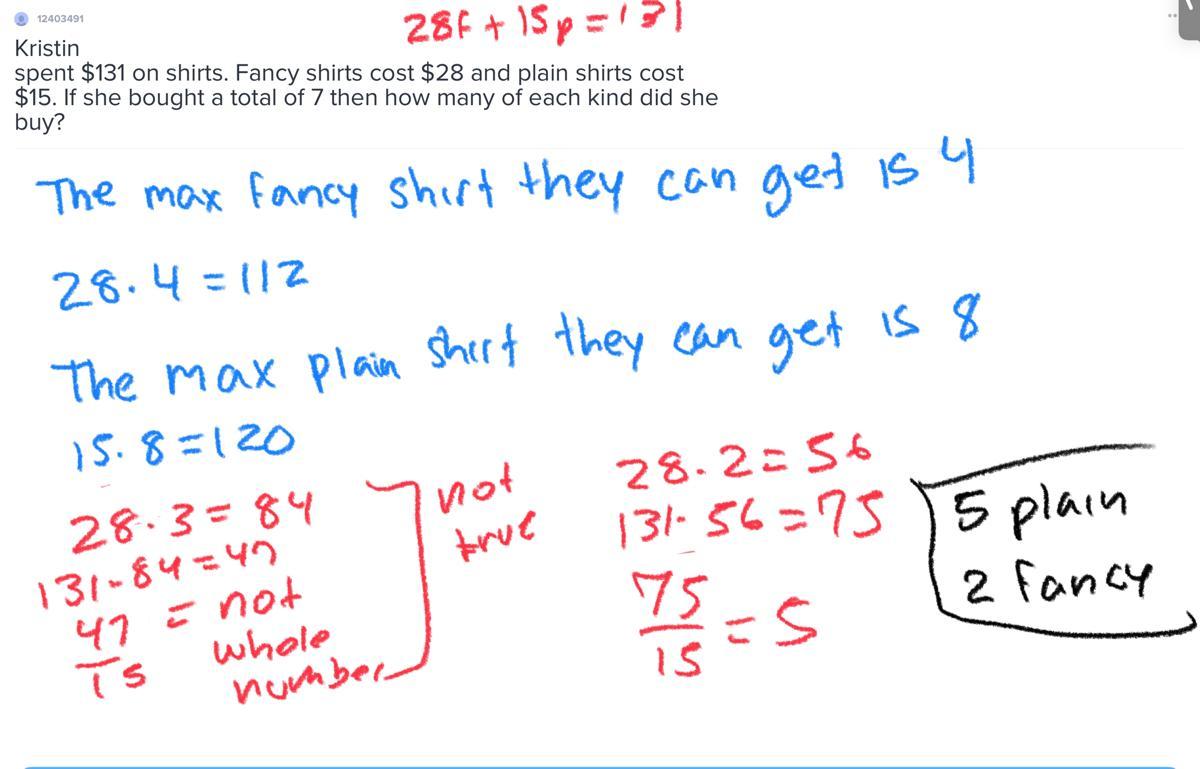 12403491
28f + 15p = 131
Kristin
spent $131 on shirts. Fancy shirts cost $28 and plain shirts cost
$15. If she bought a total of 7 then how many of each kind did she
buy?
The max fancy shirt they can get is 4
28 · 4 = 112
The max plain shirt they can get is 8
15 · 8 = 120
28 · 3 = 84
131 - 84 = 47
47/15 = not whole number
not true
28 · 2 = 56
131 - 56 = 75
75/15 = 5
5 plain
2 fancy